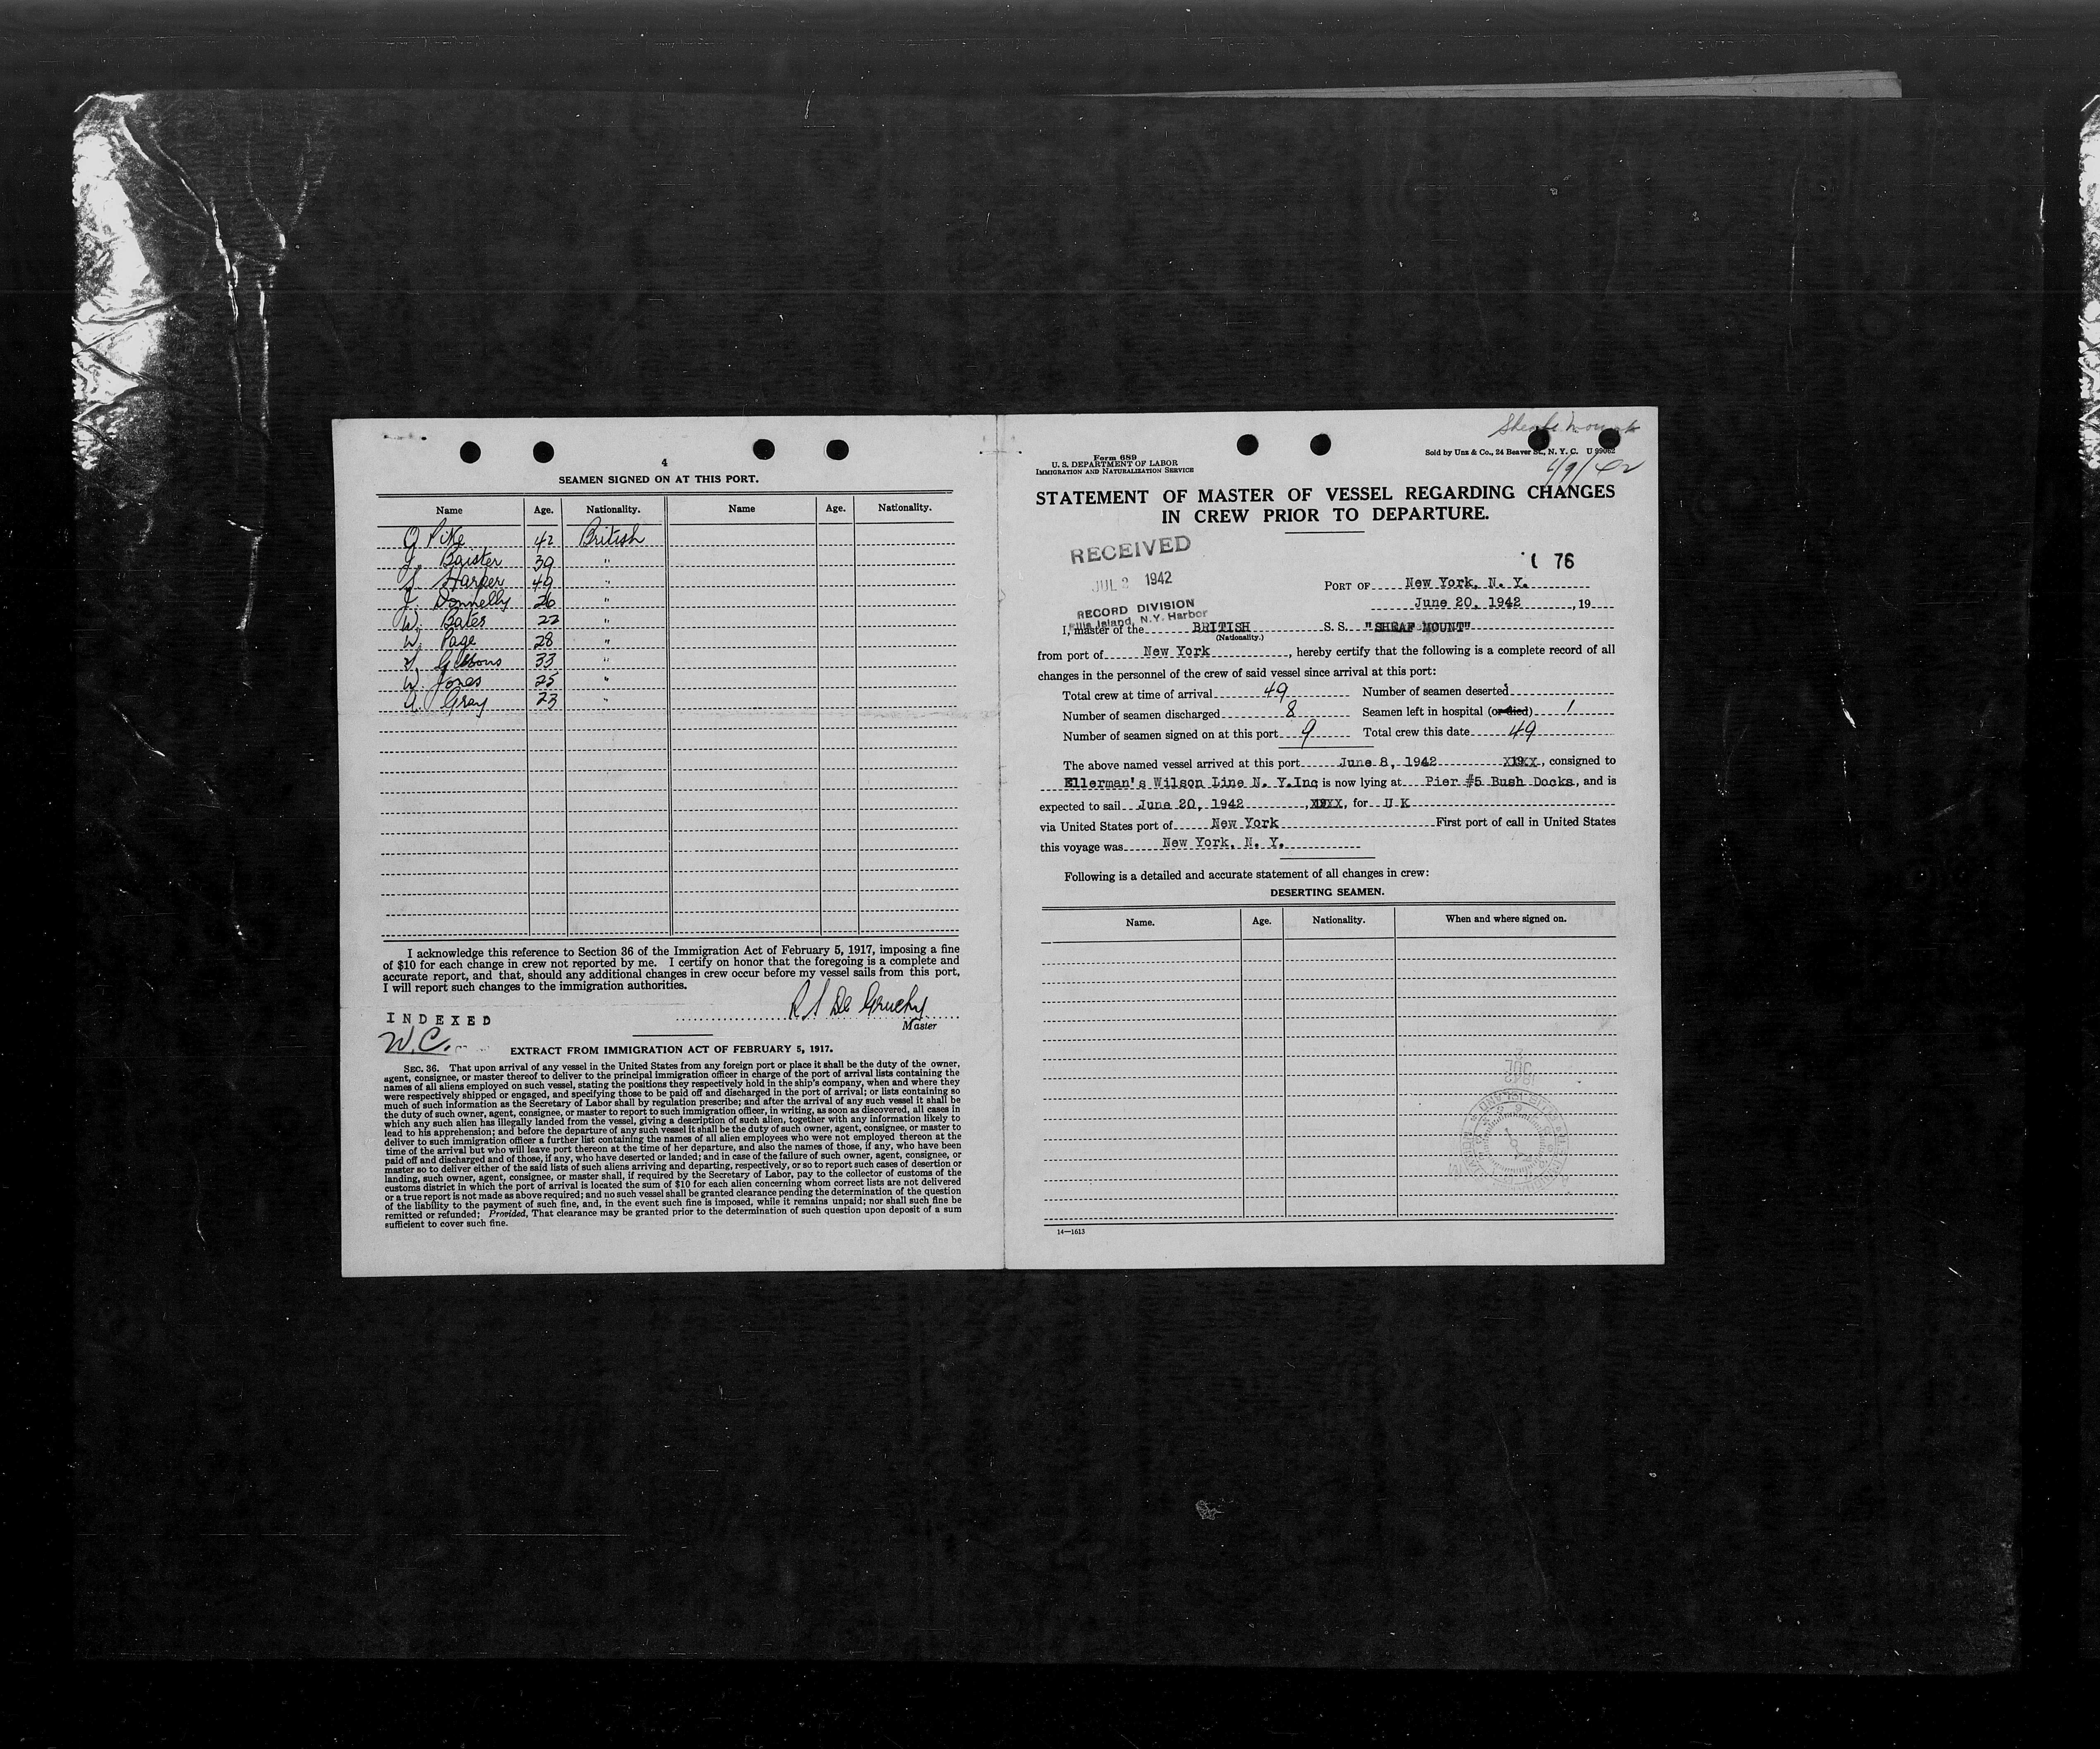 4
SEAMEN SIGNED ON AT THIS PORT.
Name Age. Nationality. Name Age. Nationality.
Pike 42 British
J. Baister 39 "
S. Harper 49 "
J. Donnelly 26 "
W. Bates 22 "
W. Page 28 "
Gibbons 33 "
W. Jones 25 "
A. Gray 23 "
I acknowledge this reference to Section 36 of the Immigration Act of February 5, 1917, imposing a fine
of $10 for each change in crew not reported by me. I certify on honor that the foregoing is a complete and
accurate report, and that, should any additional changes in crew occur before my vessel sails from this port,
I will report such changes to the immigration authorities.
R S De Gruchy
Master
INDEXED
W.C.
EXTRACT FROM IMMIGRATION ACT OF FEBRUARY 5, 1917.
SEC. 36. That upon arrival of any vessel in the United States from any foreign port or place it shall be the duty of the owner,
agent, consignee, or master thereof to deliver to the principal immigration officer in charge of the port of arrival lists containing the
names of all aliens employed on such vessel, stating the positions they respectively hold in the ship's company, when and where they
were respectively shipped or engaged, and specifying those to be paid off and discharged in the port of arrival; or lists containing so
much of such information as the Secretary of Labor shall by regulation prescribe; and after the arrival of any such vessel it shall be
the duty of such owner, agent, consignee, or master to report to such immigration officer, in writing, as soon as discovered, all cases in
which any such alien has illegally landed from the vessel, giving a description of such alien, together with any information likely to
lead to his apprehension; and before the departure of any such vessel it shall be the duty of such owner, agent, consignee, or master to
deliver to such immigration officer a further list containing the names of all alien employees who were not employed thereon at the
time of the arrival but who will leave port thereon at the time of her departure, and also the names of those, if any, who have been
paid off and discharged and of those, if any, who have deserted or landed; and in case of the failure of such owner, agent, consignee, or
master so to deliver either of the said lists of such aliens arriving and departing, respectively, or so to report such cases of desertion or
landing, such owner, agent, consignee, or master shall, if required by the Secretary of Labor, pay to the collector of customs of the
customs district in which the port of arrival is located the sum of $10 for each alien concerning whom correct lists are not delivered
or a true report is not made as above required; and no such vessel shall be granted clearance pending the determination of the question
of the liability to the payment of such fine, and, in the event such fine is imposed, while it remains unpaid; nor shall such fine be
remitted or refunded; Provided, That clearance may be granted prior to the determination of such question upon deposit of a sum
sufficient to cover such fine.
Sheaf Mount
Form 689
U. S. DEPARTMENT OF LABOR
IMMIGRATION AND NATURALIZATION SERVICE
Sold by Unz & Co., 24 Beaver St., N. Y. C. U 99082
STATEMENT OF MASTER OF VESSEL REGARDING CHANGES
IN CREW PRIOR TO DEPARTURE.
RECEIVED
JUL 2 1942
RECORD DIVISION
Ellis Island, N.Y. Harbor
76
PORT OF New York, N. Y.
June 20, 1942, 19
I, master of the BRITISH S. S. "SHEAF MOUNT"
(Nationality.)
from port of New York, hereby certify that the following is a complete record of all
changes in the personnel of the crew of said vessel since arrival at this port:
Total crew at time of arrival 49 Number of seamen deserted
Number of seamen discharged 8 Seamen left in hospital (or died) 1
Number of seamen signed on at this port 9 Total crew this date 49
The above named vessel arrived at this port June 8, 1942 X19XX, consigned to
Ellerman's Wilson Line N. Y.Inc is now lying at Pier #5 Bush Docks, and is
expected to sail June 20, 1942, X19XX, for U K
via United States port of New York First port of call in United States
this voyage was New York, N. Y.
Following is a detailed and accurate statement of all changes in crew:
DESERTING SEAMEN.
Name. Age. Nationality. When and where signed on.
14—1613